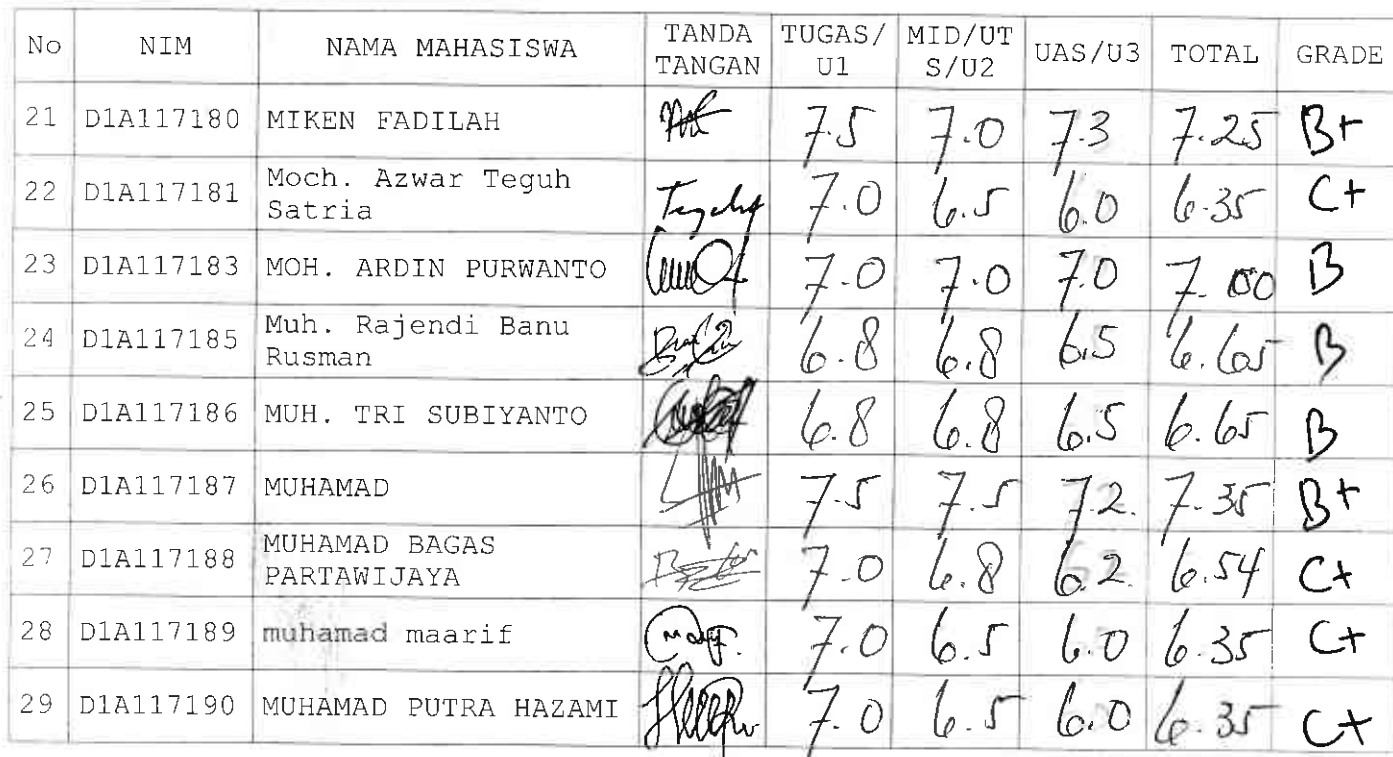 No NIM NAMA MAHASISWA TANDA TANGAN TUGAS/U1 MID/UTS/U2 UAS/U3 TOTAL GRADE
21 D1A117180 MIKEN FADILAH 7.5 7.0 7.3 7.25 B+
22 D1A117181 Moch. Azwar Teguh Satria Teguh 7.0 6.5 6.0 6.35 C+
23 D1A117183 MOH. ARDIN PURWANTO 7.0 7.0 7.0 7.00 B
24 D1A117185 Muh. Rajendi Banu Rusman 6.8 6.8 6.5 6.65 B
25 D1A117186 MUH. TRI SUBIYANTO 6.8 6.8 6.5 6.65 B
26 D1A117187 MUHAMAD 7.5 7.5 7.2. 7.35 B+
27 D1A117188 MUHAMAD BAGAS PARTAWIJAYA 7.0 6.8 6.2. 6.54 C+
28 D1A117189 muhamad maarif 7.0 6.5 6.0 6.35 C+
29 D1A117190 MUHAMAD PUTRA HAZAMI 7.0 6.5 6.0 6.35 C+